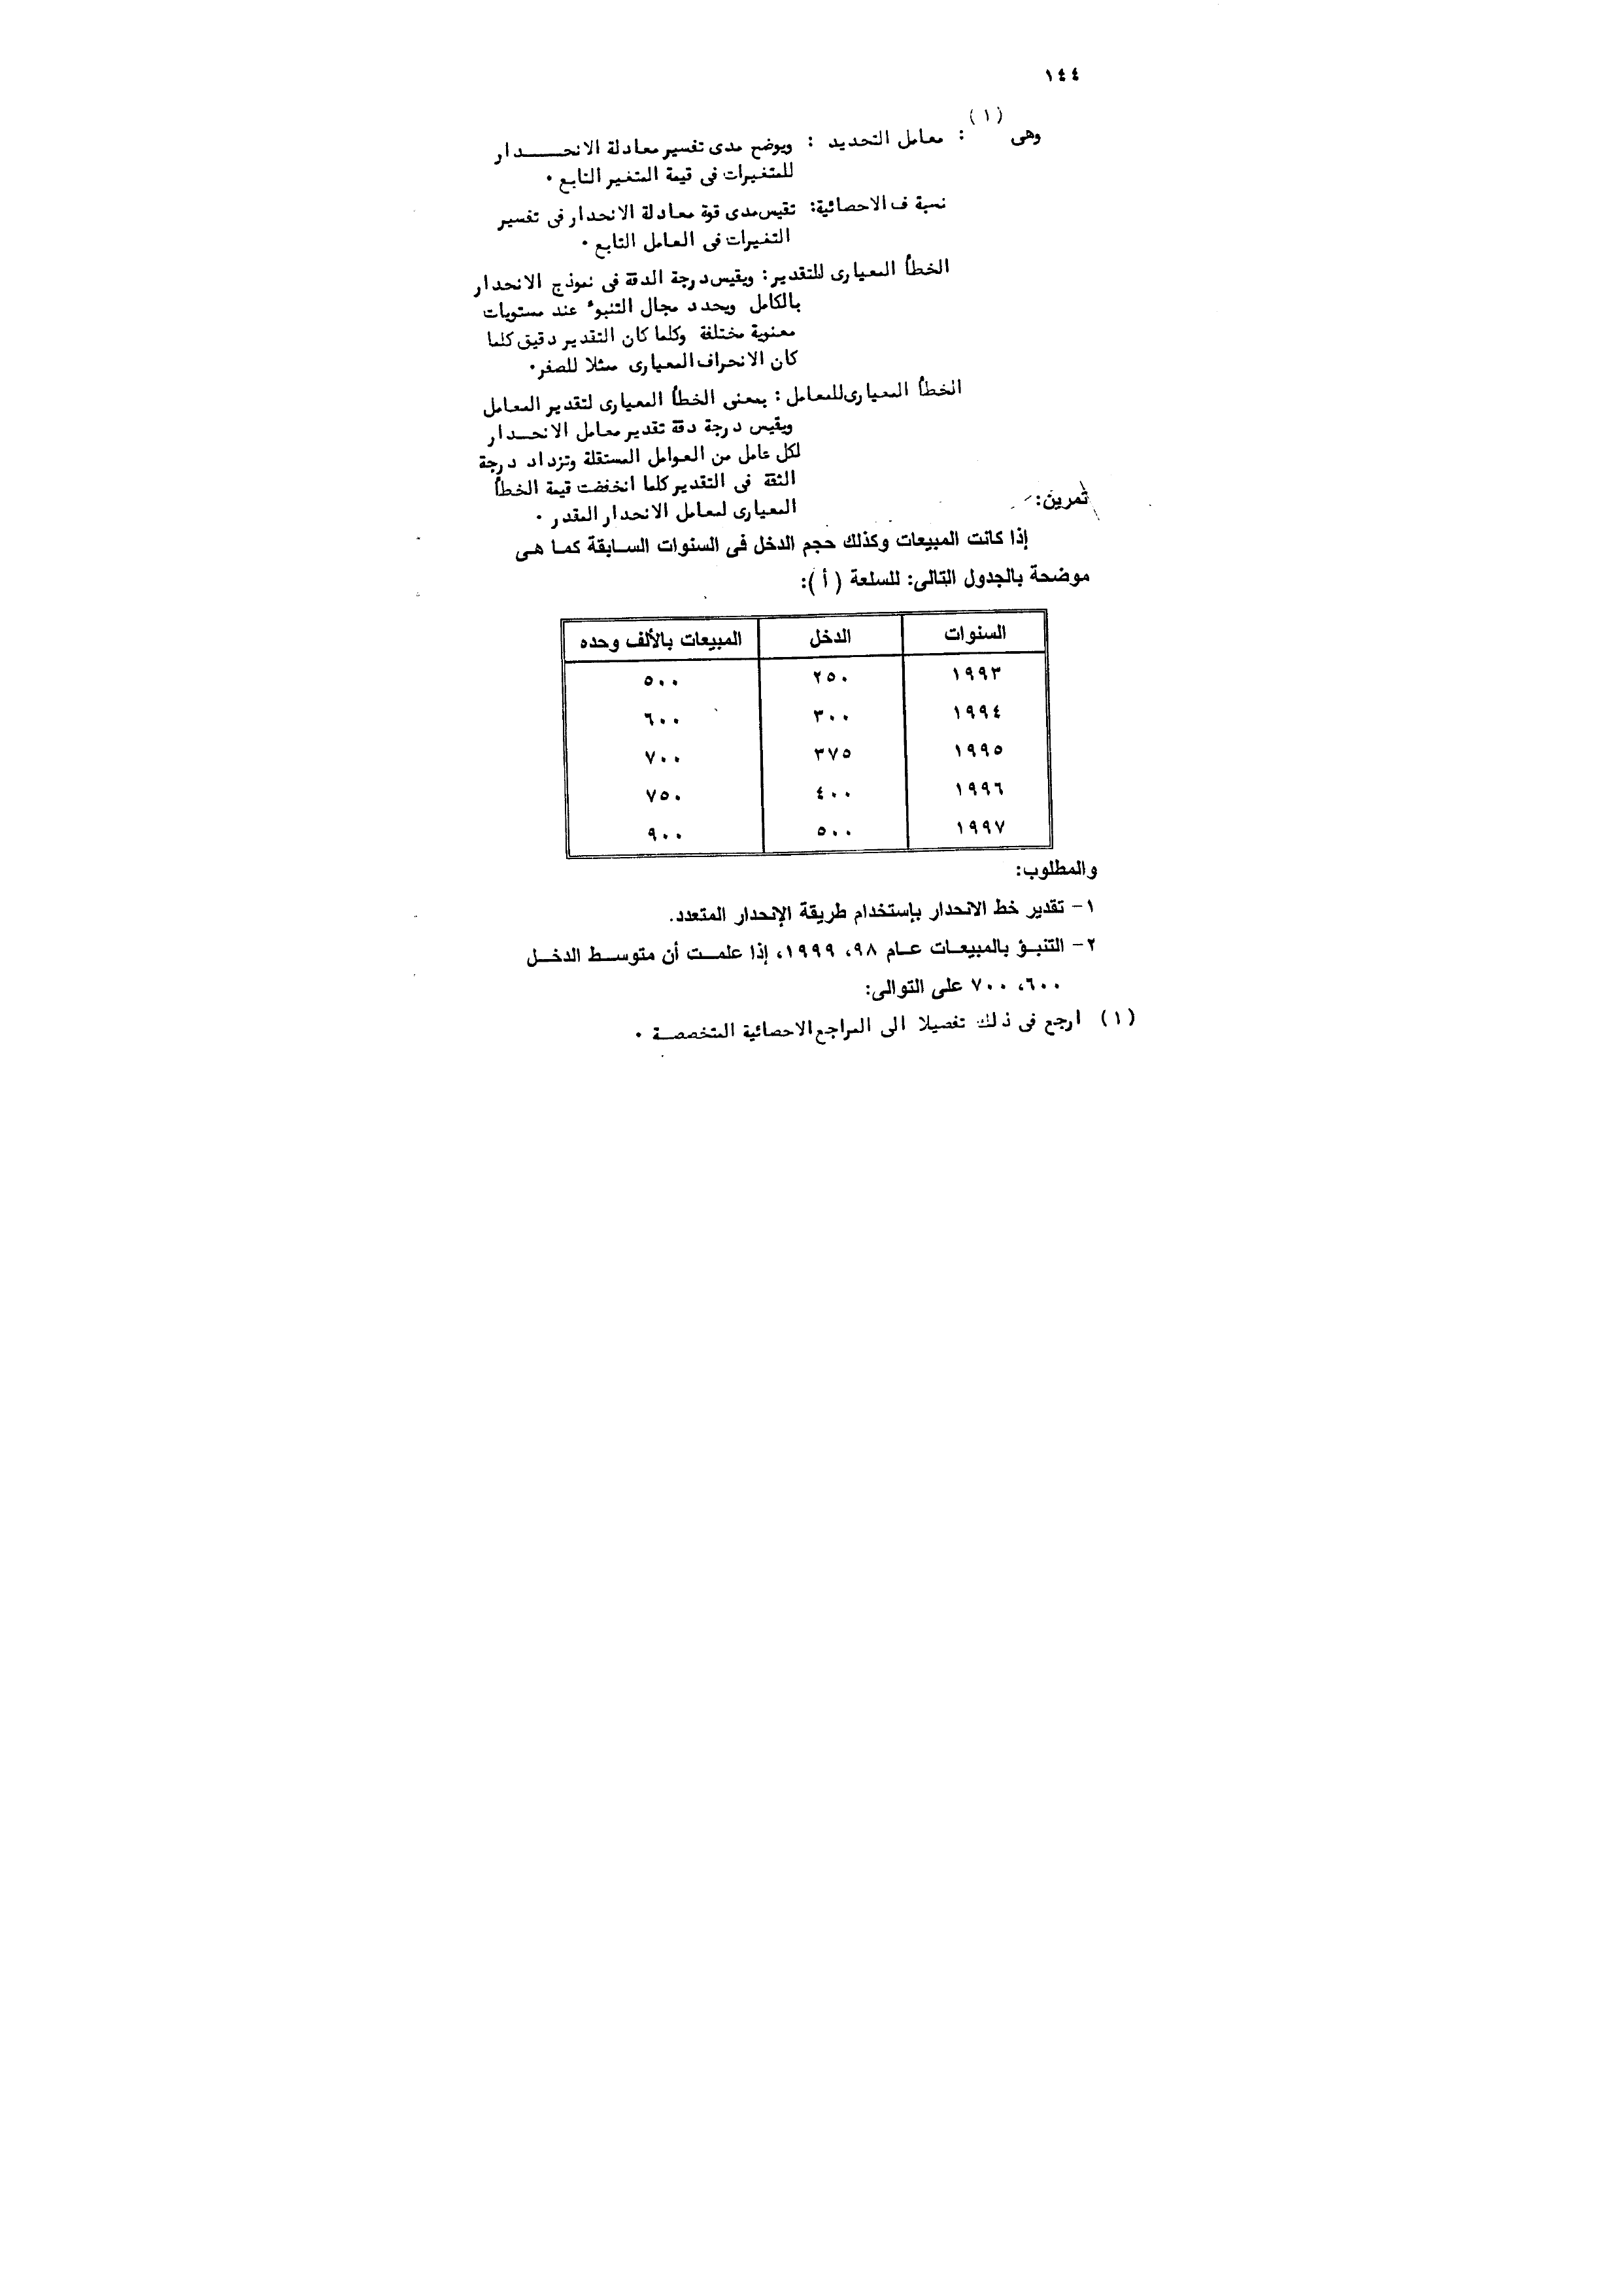 ١٤٤
وهى (١) : معامل التحديد : ويوضح مدى تفسير معادلة الانحـــــدار
للمتغيرات فى قيمة المتغير التابع ٠
نسبة ف الاحصائية: تقيس مدى قوة معادلة الانحدار فى تفسير
التغيرات فى العامل التابع ٠
الخطأ المعيارى للتقدير: ويقيس درجة الدقة فى نموذج الانحدار
بالكامل ويحدد مجال التنبوء عند مستويات
معنوية مختلفة وكلما كان التقدير دقيق كلما
كان الانحراف المعيارى ممثلا للصفر٠
الخطأ المعيارى للمعامل : بمعنى الخطأ المعيارى لتقدير المعامل
ويقيس درجة دقة تقدير معامل الانحــدار
لكل عامل من العوامل المستقلة وتزداد درجة
الثقة فى التقدير كلما انخفضت قيمة الخطأ
المعيارى لمعامل الانحدار المقدر ٠
تمرين:
إذا كانت المبيعات وكذلك حجم الدخل فى السنوات السـابقة كمـا هـى
موضحة بالجدول التالى: للسلعة (أ):
السنوات الدخل المبيعات بالألف وحده
١٩٩٣ ٢٥٠ ٥٠٠
١٩٩٤ ٣٠٠ ٦٠٠
١٩٩٥ ٣٧٥ ٧٠٠
١٩٩٦ ٤٠٠ ٧٥٠
١٩٩٧ ٥٠٠ ٩٠٠
والمطلوب:
١- تقدير خط الانحدار بإستخدام طريقة الإنحدار المتعدد.
٢- التنبـؤ بالمبيعـات عـام ٩٨، ١٩٩٩، إذا علمـت أن متوسـط الدخـل
٦٠٠، ٧٠٠ على التوالى:
(١) ارجع فى ذلك تفصيلا الى المراجع الاحصائية المتخصصـة ٠